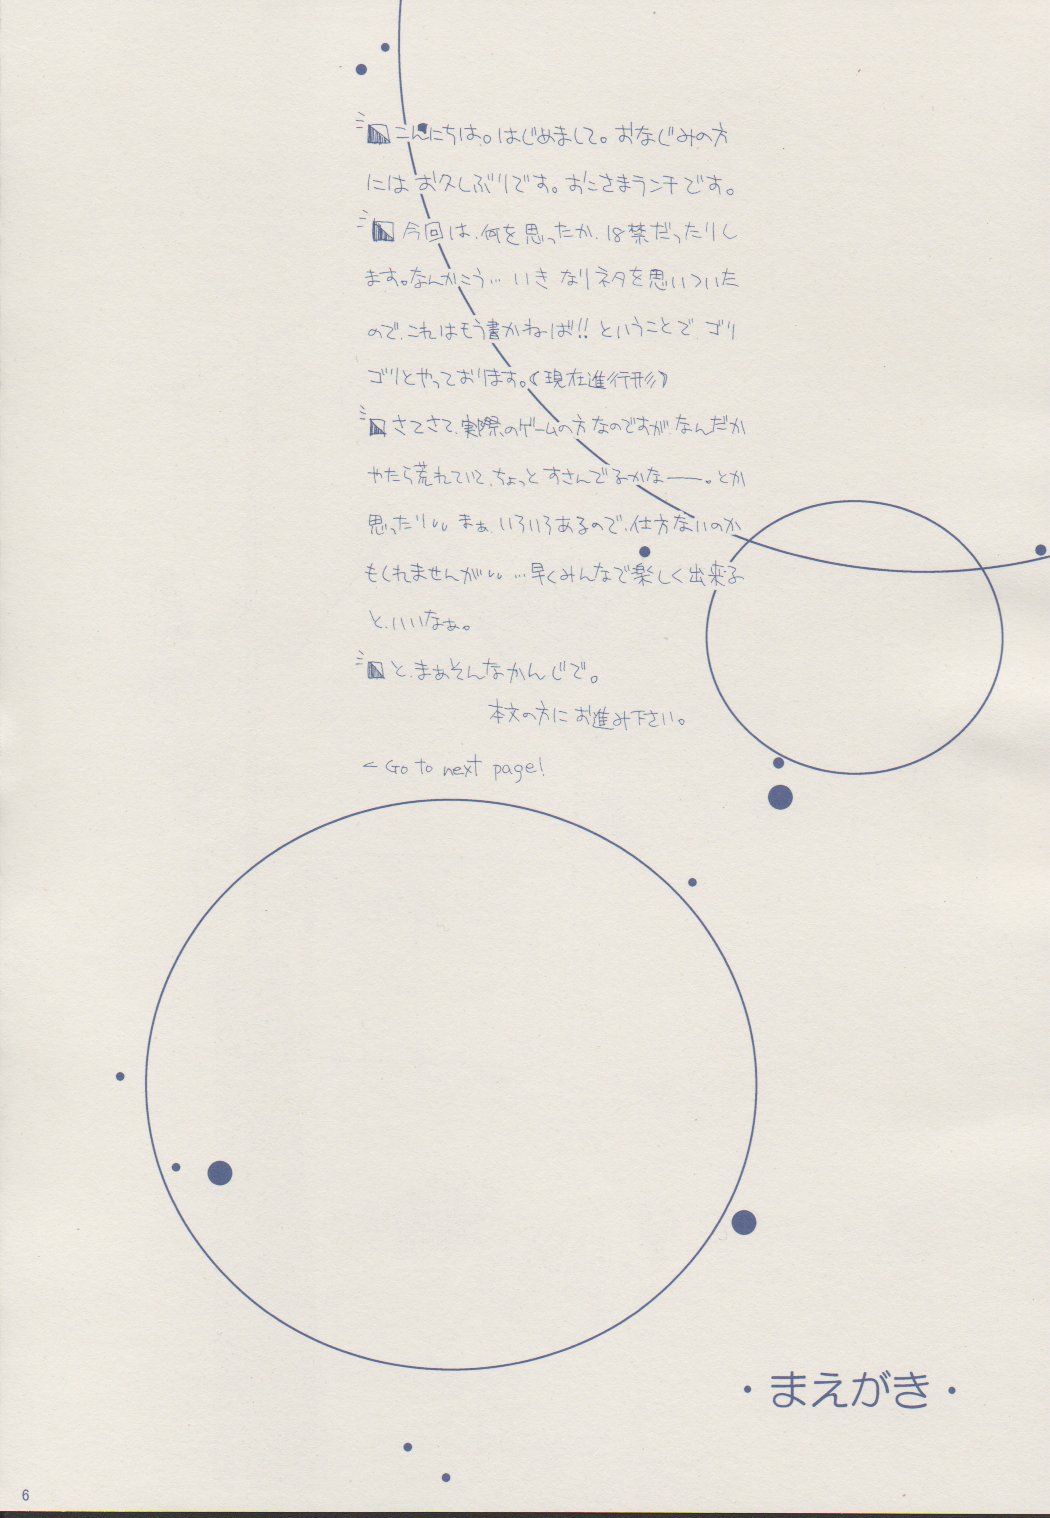 こんにちは。はじめまして。おなじみの方
には お久しぶりです。おこさまランチです。
今回は、何を思ったか、18禁だったりし
ます。なんかこう… いきなりネタを思いついた
ので、これはもう書かねば!! ということで、ゴリ
ゴリとやっております。(現在進行形)
さてさて、実際のゲームの方なのですが、なんだか
やたら荒れていて、ちょっとすさんでるかなー。とか
思ったり、、まぁ、いろいろあるので、仕方ないのか
もしれませんが、、…早くみんなで楽しく出来る
と、いいなぁ。
と、まぁそんなかんじで。
本文の方にお進み下さい。
< Go to next page!
・まえがき・
6